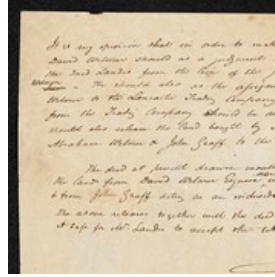 It is my opinion that in order to mak
David Witmer should as a judgment
the said Landis from the lien of the
. He should also as the assignee
Witmer to the Lancaster Trading Company
from the Trading Company should be
should also release the land bought by
Abraham Witmer & John Graff to the
The deed at present drawn
the land from David Witmer Esquire
& from John Graff acting as an individual
the above releases together with the deed
it safe for Mr. Landis to accept the